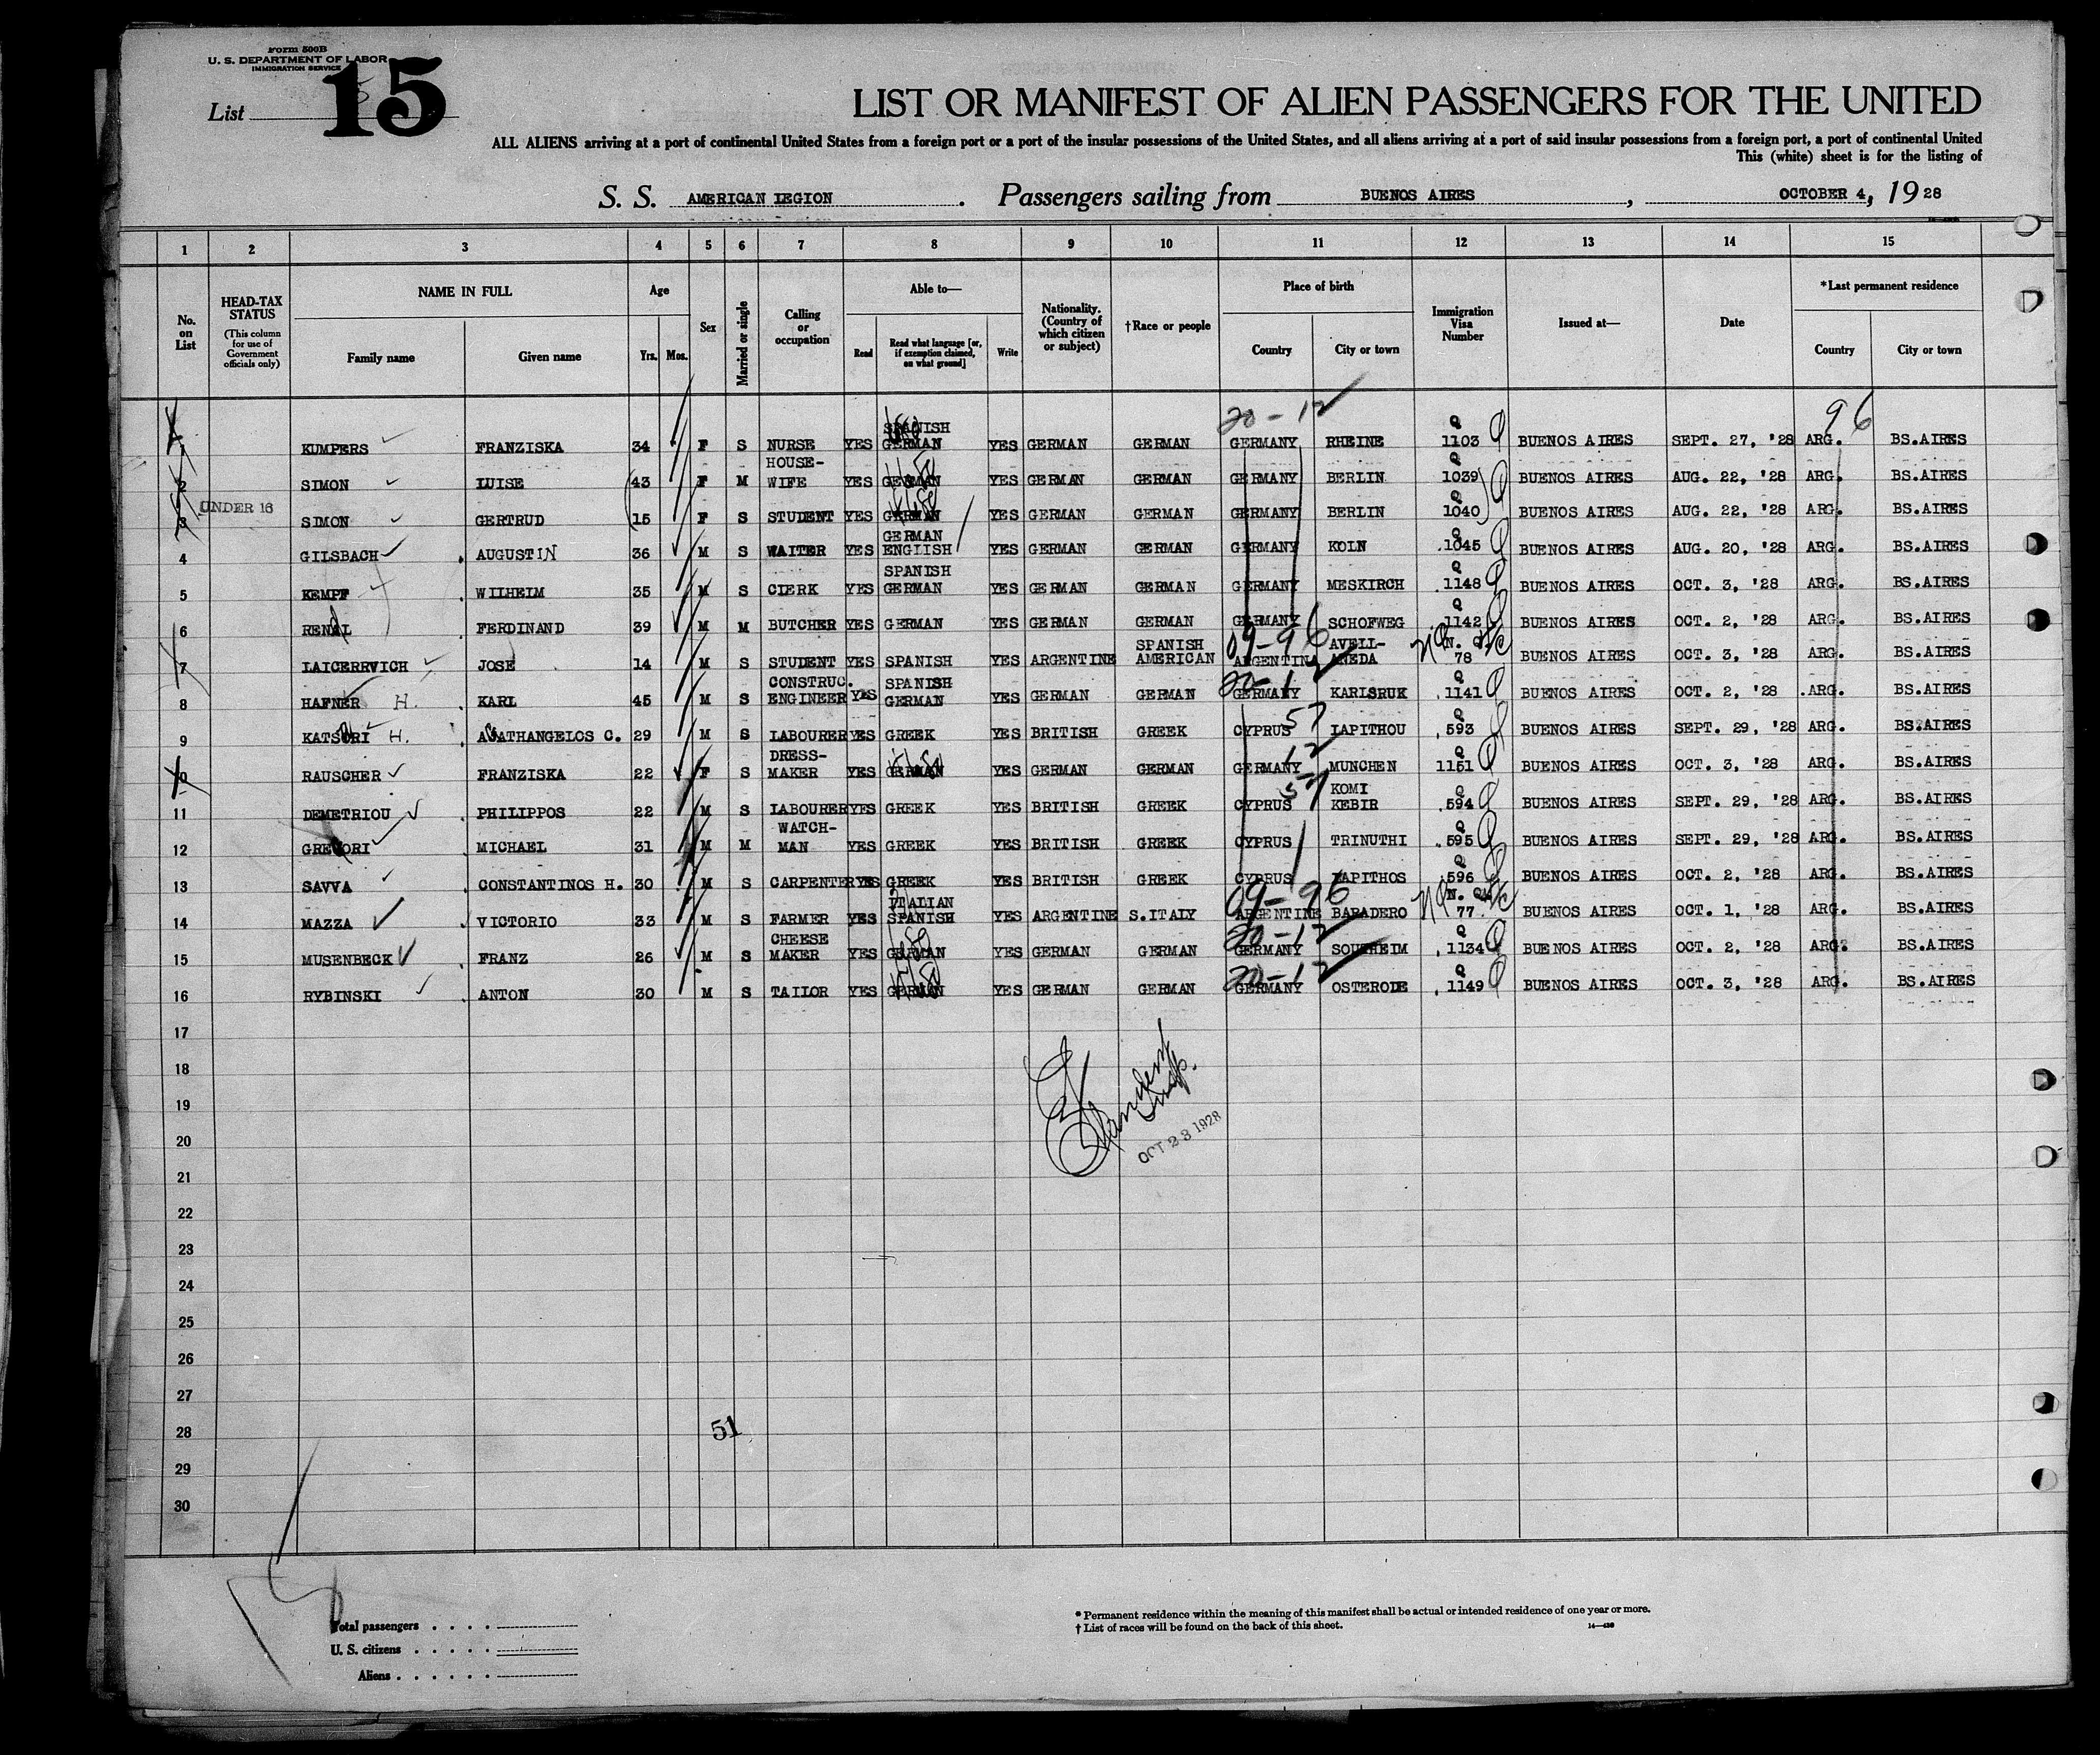 Form 500B
U. S. DEPARTMENT OF LABOR
IMMIGRATION SERVICE
List 15
LIST OR MANIFEST OF ALIEN PASSENGERS FOR THE UNITED
ALL ALIENS arriving at a port of continental United States from a foreign port or a port of the insular possessions of the United States, and all aliens arriving at a port of said insular possessions from a foreign port, a port of continental United
This (white) sheet is for the listing of
S. S. AMERICAN LEGION . Passengers sailing from BUENOS AIRES , OCTOBER 4, 1928
1 2 3 4 5 6 7 8 9 10 11 12 13 14 15
No. on List HEAD-TAX STATUS (This column for use of Government officials only) NAME IN FULL Family name Given name Age Yrs. Mos. Sex Married or single Calling or occupation Able to— Read Read what language [or, if exemption claimed, on what ground] Write Nationality. (Country of which citizen or subject) †Race or people Place of birth Country City or town Immigration Visa Number Issued at— Date *Last permanent residence Country City or town
20-12 96
KUMPERS FRANZISKA 34 F S NURSE YES SPANISH GERMAN YES GERMAN GERMAN GERMANY RHEINE Q 1103 BUENOS AIRES SEPT. 27, '28 ARG. BS.AIRES
2 SIMON LUISE 43 F M HOUSE-WIFE YES GERMAN YES GERMAN GERMAN GERMANY BERLIN Q 1039 BUENOS AIRES AUG. 22, '28 ARG. BS.AIRES
3 UNDER 16 SIMON GERTRUD 15 F S STUDENT YES GERMAN YES GERMAN GERMAN GERMANY BERLIN Q 1040 BUENOS AIRES AUG. 22, '28 ARG. BS.AIRES
4 GILSBACH AUGUSTIN 36 M S WAITER YES GERMAN ENGLISH YES GERMAN GERMAN GERMANY KOLN Q 1045 BUENOS AIRES AUG. 20, '28 ARG. BS.AIRES
5 KEMPF WILHEIM 35 M S CLERK YES SPANISH GERMAN YES GERMAN GERMAN GERMANY MESKIRCH Q 1148 BUENOS AIRES OCT. 3, '28 ARG. BS.AIRES
6 FERDINAND 39 M M BUTCHER YES GERMAN YES GERMAN GERMAN GERMANY SCHOFWEG Q 1142 BUENOS AIRES OCT. 2, '28 ARG. BS.AIRES
7 LAICERRVICH JOSE 14 M S STUDENT YES SPANISH YES ARGENTINE SPANISH AMERICAN 09-96 ARGENTINA AVELL-ANEDA N. Q. 78 BUENOS AIRES OCT. 3, '28 ARG. BS.AIRES
8 HAFNER H. KARL 45 M S CONSTRUC. ENGINEER YES SPANISH GERMAN YES GERMAN GERMAN 20-12 GERMANY KARLSRUK Q 1141 BUENOS AIRES OCT. 2, '28 ARG. BS.AIRES
9 H. AGATHANGELOS C. 29 M S LABOURER YES GREEK YES BRITISH GREEK CYPRUS 57 LAPITHOU Q 593 BUENOS AIRES SEPT. 29, '28 ARG. BS.AIRES
10 RAUSCHER FRANZISKA 22 F S DRESS-MAKER YES GERMAN YES GERMAN GERMAN GERMANY 12 MUNCHEN Q 1151 BUENOS AIRES OCT. 3, '28 ARG. BS.AIRES
11 DEMETRIOU PHILIPPOS 22 M S LABOURER YES GREEK YES BRITISH GREEK CYPRUS 57 KOMI KEBIR Q 594 BUENOS AIRES SEPT. 29, '28 ARG. BS.AIRES
12 GREGORI MICHAEL 31 M M WATCH-MAN YES GREEK YES BRITISH GREEK CYPRUS TRINUTHI Q 595 BUENOS AIRES SEPT. 29, '28 ARG. BS.AIRES
13 SAVVA CONSTANTINOS H. 30 M S CARPENTER YES GREEK YES BRITISH GREEK CYPRUS LAPITHOS Q 596 BUENOS AIRES OCT. 2, '28 ARG. BS.AIRES
14 MAZZA VICTORIO 33 M S FARMER YES ITALIAN SPANISH YES ARGENTINE S.ITALY 09-96 ARGENTINE BARADERO N. Q. 77 BUENOS AIRES OCT. 1, '28 ARG. BS.AIRES
15 MUSENBECK FRANZ 26 M S CHEESE MAKER YES GERMAN YES GERMAN GERMAN 20-12 GERMANY Q 1134 BUENOS AIRES OCT. 2, '28 ARG. BS.AIRES
16 RYBINSKI ANTON 30 M S TAILOR YES GERMAN YES GERMAN GERMAN 20-12 GERMANY OSTERODE Q 1149 BUENOS AIRES OCT. 3, '28 ARG. BS.AIRES
17
18
19
20
OCT 23 1928
21
22
23
24
25
26
27
28 51
29
30
Total passengers
U. S. citizens
Aliens
* Permanent residence within the meaning of this manifest shall be actual or intended residence of one year or more.
† List of races will be found on the back of this sheet.